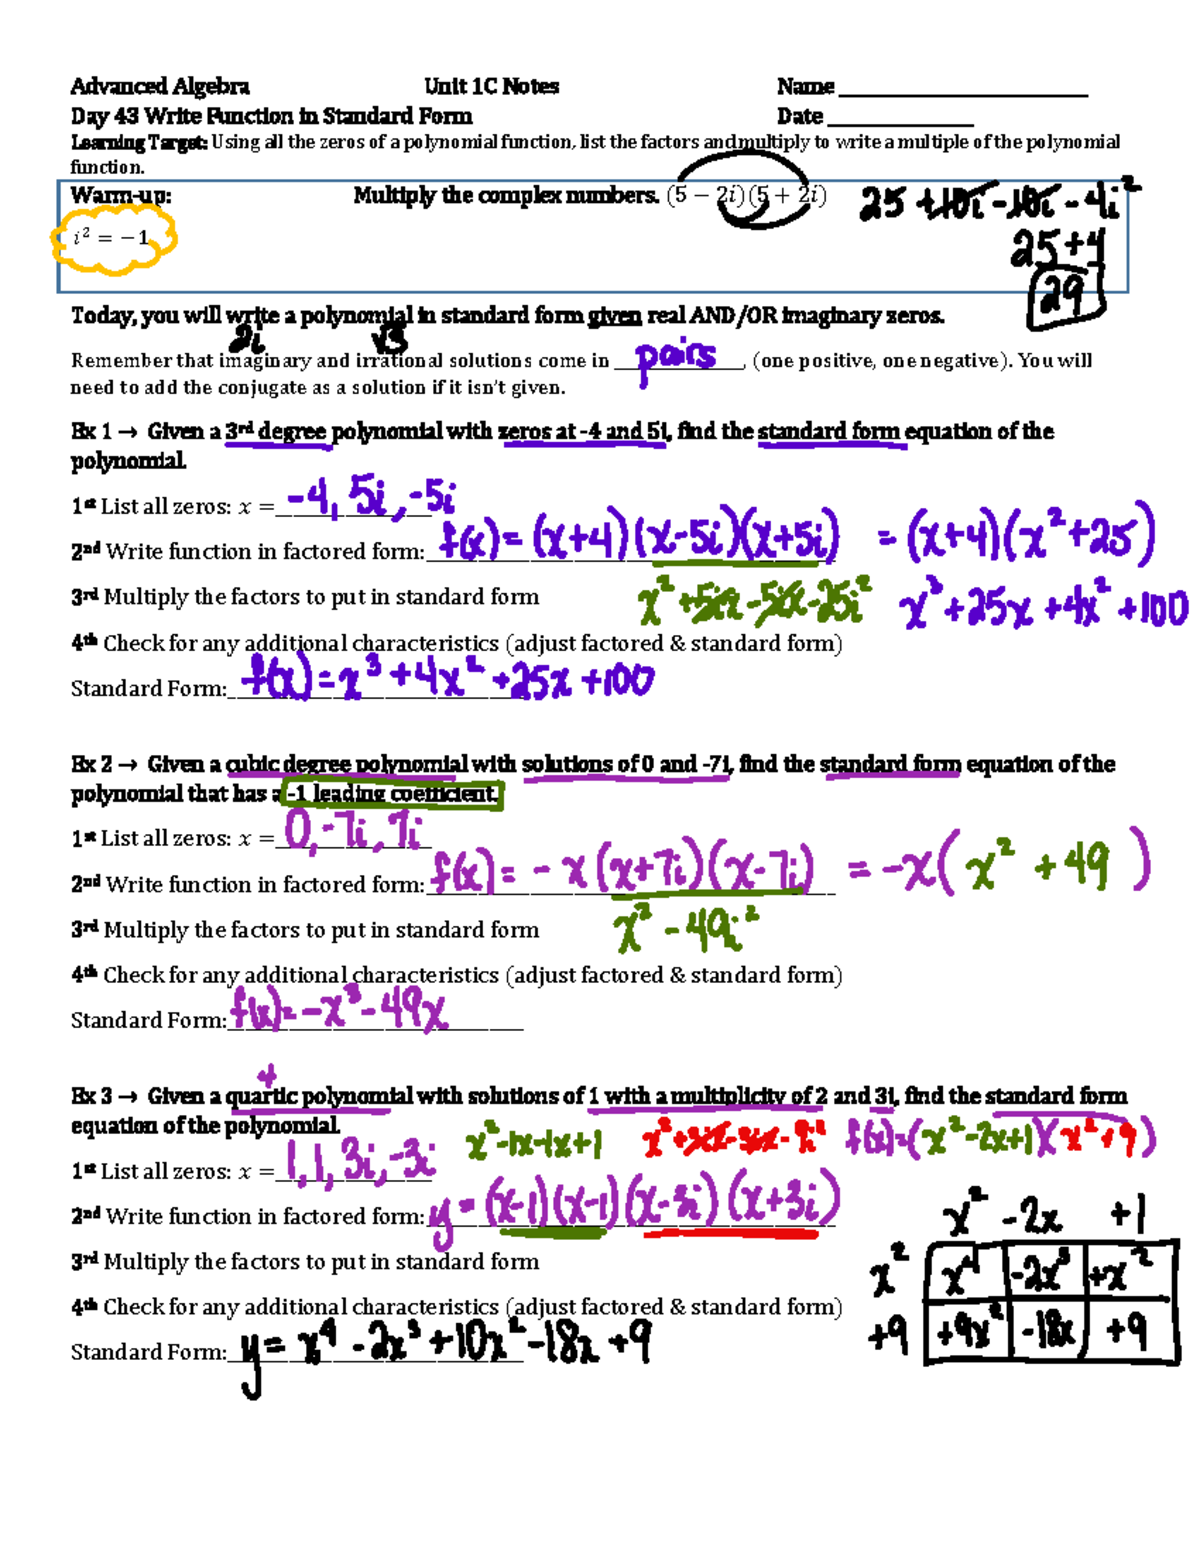 Advanced Algebra Unit 1C Notes Name ____________________
Day 43 Write Function in Standard Form Date ____________
Learning Target: Using all the zeros of a polynomial function, list the factors and multiply to write a multiple of the polynomial
function.
Warm-up: Multiply the complex numbers. (5 − 2i)(5 + 2i) 25 +10i -10i - 4i²
i² = −1
25+4
29
Today, you will write a polynomial in standard form given real AND/OR imaginary zeros.
2i √3
Remember that imaginary and irrational solutions come in pairs, (one positive, one negative). You will
need to add the conjugate as a solution if it isn't given.
Ex 1 → Given a 3rd degree polynomial with zeros at -4 and 5i, find the standard form equation of the
polynomial.
1st List all zeros: x = -4, 5i, -5i
2nd Write function in factored form: f(x) = (x+4)(x-5i)(x+5i) = (x+4)(x²+25)
3rd Multiply the factors to put in standard form x² +5ix -5ix -25i² x³+25x+4x²+100
4th Check for any additional characteristics (adjust factored & standard form)
Standard Form: f(x) = x³ +4x² +25x +100
Ex 2 → Given a cubic degree polynomial with solutions of 0 and -7i, find the standard form equation of the
polynomial that has a -1 leading coefficient.
1st List all zeros: x = 0, -7i, 7i
2nd Write function in factored form: f(x) = - x(x+7i)(x-7i) = -x(x² +49)
3rd Multiply the factors to put in standard form x² - 49i²
4th Check for any additional characteristics (adjust factored & standard form)
Standard Form: f(x) = -x³ - 49x
4
Ex 3 → Given a quartic polynomial with solutions of 1 with a multiplicity of 2 and 3i, find the standard form
equation of the polynomial. x²-1x-1x+1 x²+3ix-3ix-9i² f(x)=(x²-2x+1)(x²+9)
1st List all zeros: x = 1, 1, 3i, -3i
2nd Write function in factored form: y = (x-1)(x-1)(x-3i)(x+3i)
x² -2x +1
3rd Multiply the factors to put in standard form x² x⁴ -2x³ +x²
4th Check for any additional characteristics (adjust factored & standard form) +9 +9x² -18x +9
Standard Form: y = x⁴ -2x³ +10x² -18x +9